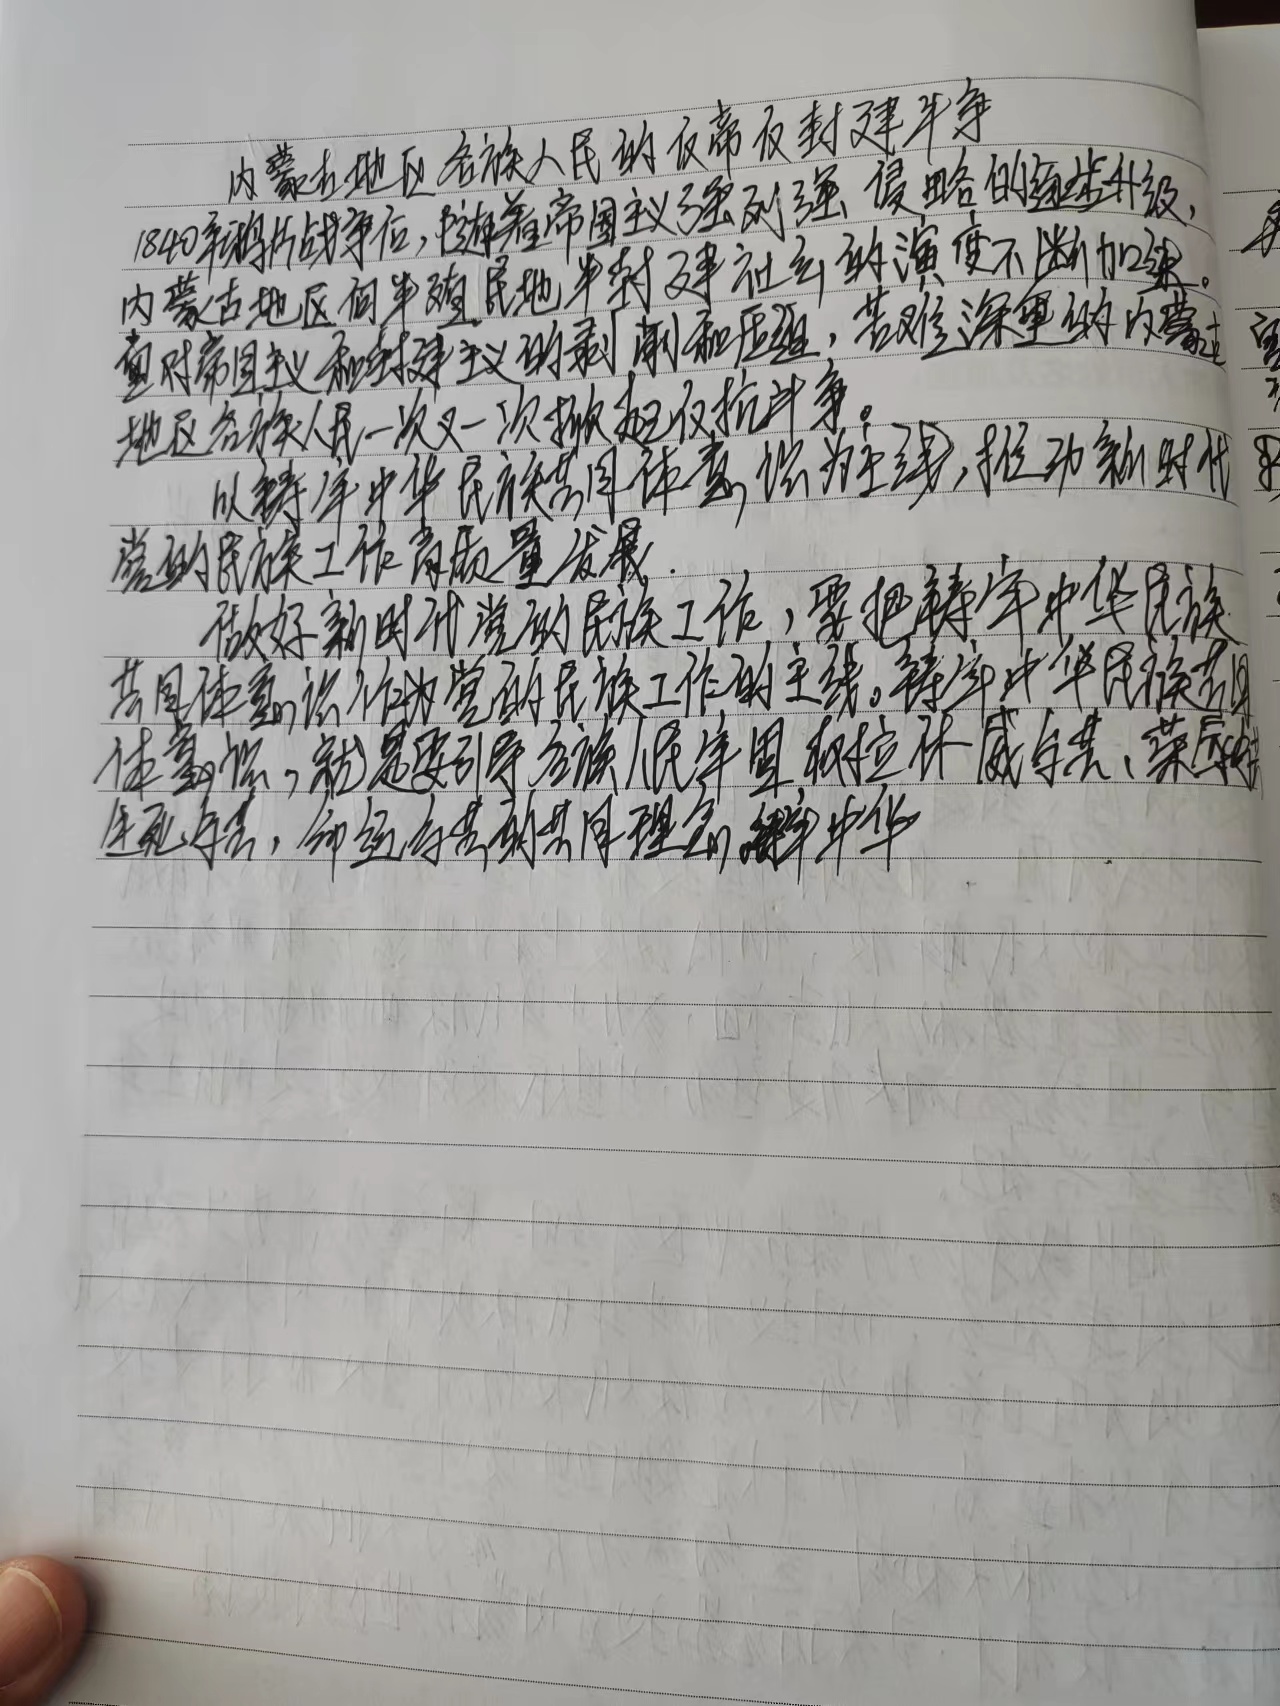 内蒙古地区各族人民的反帝反封建斗争
1840年鸦片战争后，随着帝国主义强列强侵略的逐步升级，
内蒙古地区向半殖民地半封建社会的演变不断加速。
面对帝国主义和封建主义的剥削和压迫，苦难深重的内蒙古
地区各族人民一次又一次掀起反抗斗争。
以铸牢中华民族共同体意识为主线，推动新时代
党的民族工作高质量发展.
做好新时代党的民族工作，要把铸牢中华民族
共同体意识作为党的民族工作的主线。铸牢中华民族共同
体意识，就是要引导各族人民牢固树立休戚与共、荣辱与共
生死与共，命运与共的共同理念，中华